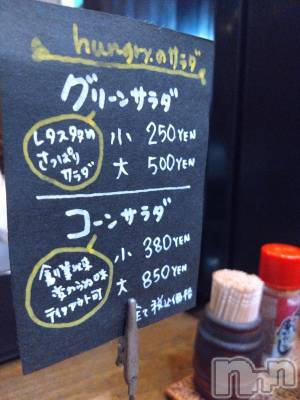 hungryのサラダ
グリーンサラダ
レタス多め
さっぱり
サラダ
小 250YEN
大 500YEN
コーンサラダ
創業以来
変わらぬ味
テイクアウト可
小 380YEN
大 850YEN
全て税込価格